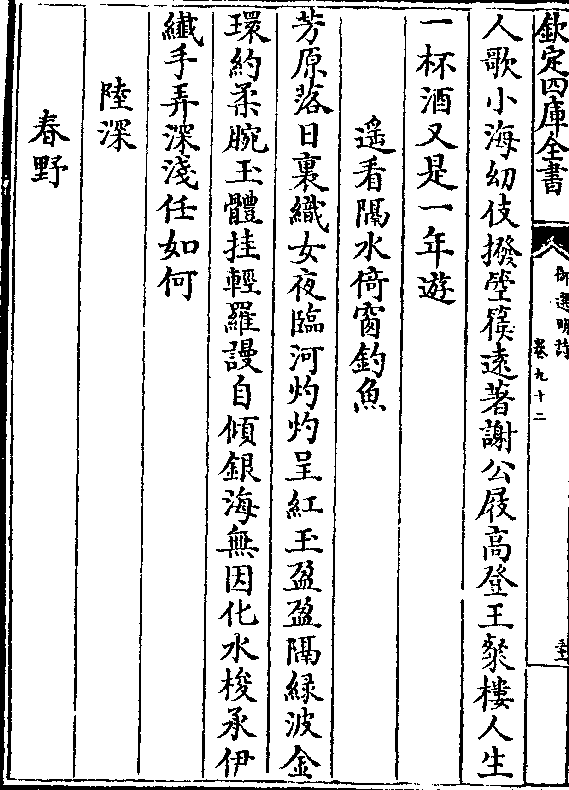 欽定四庫全書
御選明詩
卷九十二
人歌小海幼伎撥箜篌遠著謝公屐高登王粲樓人生
一杯酒又是一年遊
遥看隔水倚窗釣魚
芳原落日裏織女夜臨河灼灼呈紅玉盈盈隔緑波金
環約柔腕玉體挂輕羅謾自傾銀海無因化水梭承伊
纎手弄深淺任如何
陸深
春野